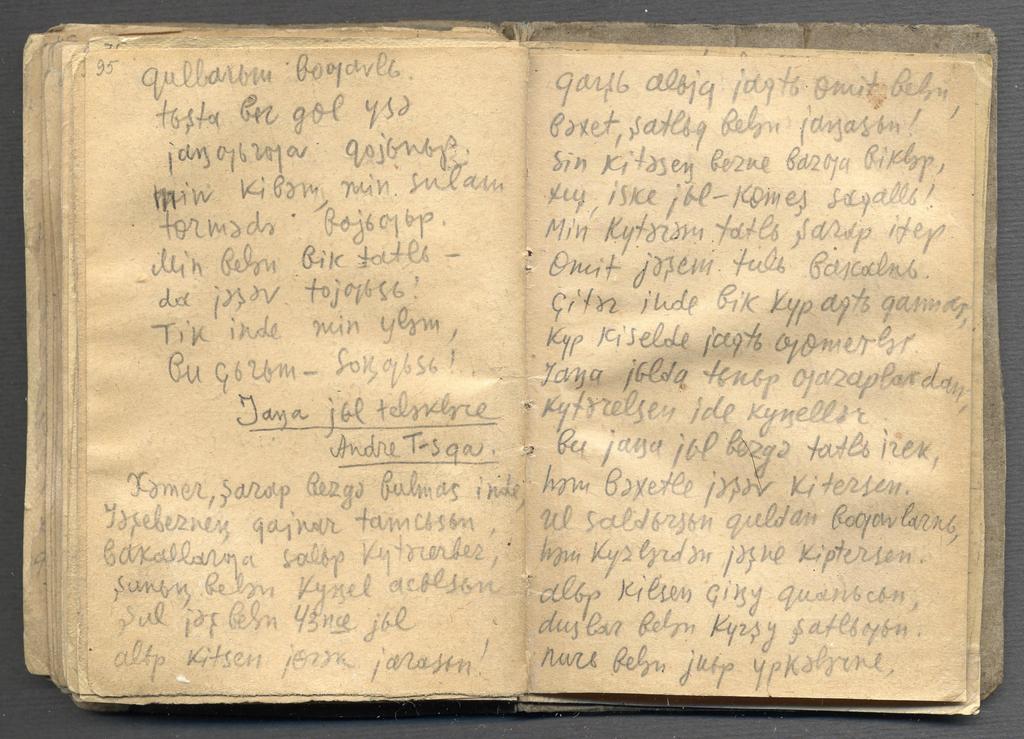 95
qullarьm boƣavlь.
tьşta ber gɵl ysə
jaꞑƣьrƣa qojьnьp.
min kibəm, min. sulam
tɵrmədə boƣьlьp.
Min belən bik tatlь –
da jəşəv tojƣьsь!
Tik inde min yləm,
Bu çьrьm – soꞑƣьsь!
Jaꞑa jьl teləklәre
Andre T-sqa.
Xəmer, şarap bezgə bulmas inde,
Jəşebezneꞑ qajnar tamcьsьn,
Bakallarƣa salьp kytərerbez,
Şunьꞑ belən kyꞑel acьlsьn
Şul jəş belən 43nce jьl
alьp kitsen jɵrək jarasьn!
qarşь alьjq jaqtь ɵmit belən,
Bəxet, şatlьq belən jaꞑasьn!
Sin kitəseꞑ bezne bazƣa bikləp,
xuş, iske jьl – kɵmeş saqallь!
Min kytərəm tatlь şarap itep
Ɵmit jəşem tulь bakalnь.
Çitər inde bik kyp aqtь qannar,
kyp kiselde jaqtь ƣɵmerlər.
Jaꞑa jьlda tьnьp ƣazaplardan,
kytərelsen ide kyꞑellər
bu jaꞑa jьl bezgə tatlь irek,
həm bəxetle jəşəv kitersen.
Ul saldьrsьn quldan boƣavlarnь,
həm kyzlərdən jəşne kiptersen.
alьp kilsen çiꞑy quanьcьn,
duslar belən kyrşy şatlьƣьn.
nurь belən juьp ypkələrne,